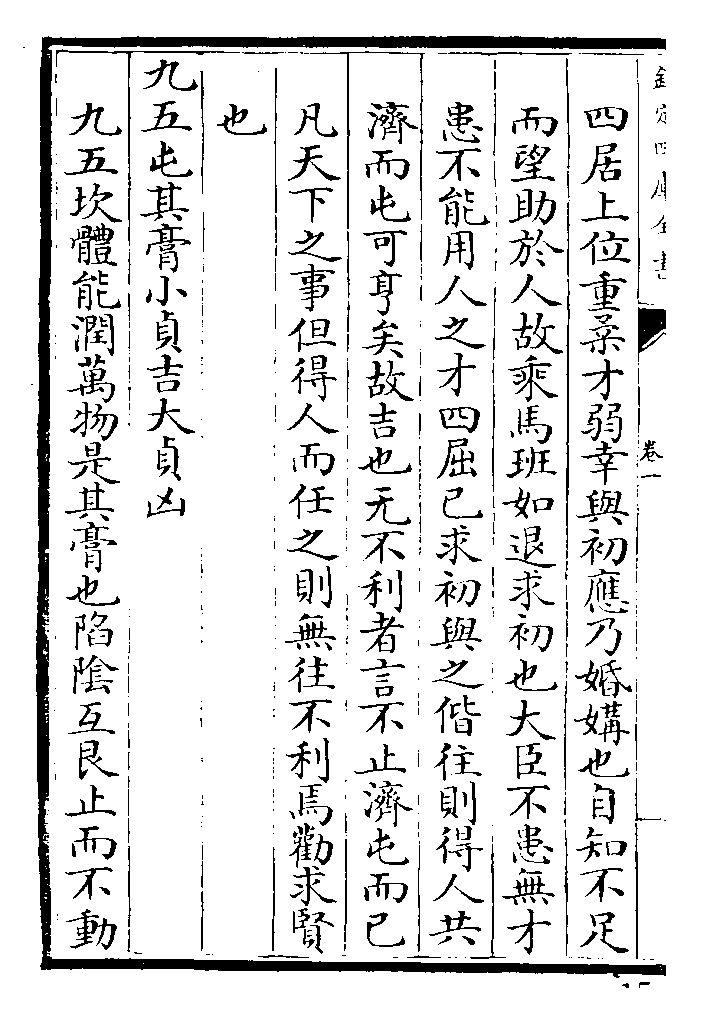 欽定四庫全書
卷一
四居上位重柔才弱幸與初應乃婚媾也自知不足
而望助於人故乘馬班如退求初也大臣不患無才
患不能用人之才四屈已求初與之偕往則得人共
濟而屯可亨矣故吉也无不利者言不止濟屯而已
凡天下之事但得人而任之則無往不利焉勸求賢
也
九五屯其膏小貞吉大貞凶
九五坎體能潤萬物是其膏也陷陰互艮止而不動